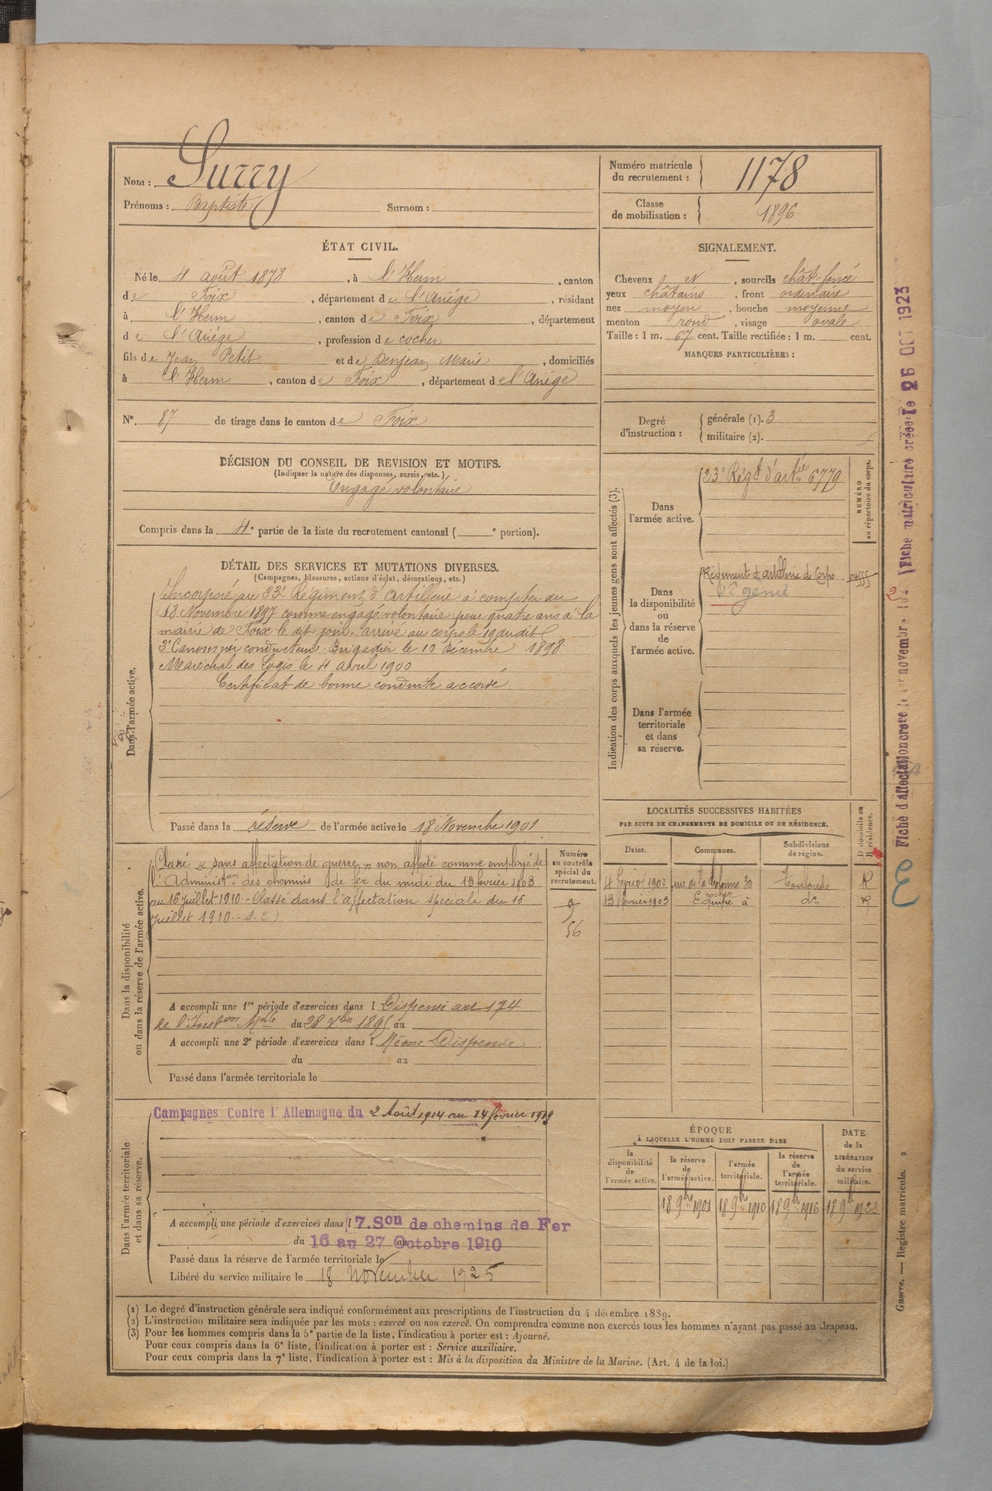 Nom : Surry
Prénoms : Baptiste Surnom :
Numéro matricule du recrutement : 1178
Classe de mobilisation : 1896
ÉTAT CIVIL.
Né le 4 août 1878, à l'Herm, canton
de Foix, département de l'Ariège, résidant
à l'Herm, canton de Foix, département
de l'Ariège, profession de cocher
fils de Jean Petit et de Denjean Marie, domiciliés
à l'Herm, canton de Foix, département de l'Ariège
N° 87 de tirage dans le canton de Foix
SIGNALEMENT.
Cheveux et, sourcils chât. foncé
yeux châtains, front ordinaire
nez moyen, bouche moyenne
menton rond, visage ovale
Taille : 1 m. 67 cent. Taille rectifiée : 1 m. cent.
MARQUES PARTICULIÈRES :
Degré d'instruction :
générale (1). 3
militaire (2).
DÉCISION DU CONSEIL DE REVISION ET MOTIFS.
(Indiquer la nature des dispenses, sursis, etc.)
Engagé volontaire
Compris dans la 4e partie de la liste du recrutement cantonal ( e portion).
DÉTAIL DES SERVICES ET MUTATIONS DIVERSES.
(Campagnes, blessures, actions d'éclat, décorations, etc.)
Dans l'armée active.
Incorporé au 23e Régiment d'Artillerie à compter du
18 Novembre 1897 comme engagé volontaire pour quatre ans à la
mairie de Foix le dit jour. arrivé au corps le 19 audit
2e Canonnier conducteur. Brigadier le 10 Décembre 1898
Maréchal des Logis le 4 avril 1900
Certificat de bonne conduite accordé
Passé dans la réserve de l'armée active le 18 Novembre 1901
Indication des corps auxquels les jeunes gens sont affectés (3).
Dans l'armée active.
23e Régt d'artie 6779
NUMÉRO au répertoire du corps.
Dans la disponibilité ou dans la réserve de l'armée active.
Régiment d'artillerie de Corps
génie
Dans l'armée territoriale et dans sa réserve.
LOCALITÉS SUCCESSIVES HABITÉES
PAR SUITE DE CHANGEMENTS DE DOMICILE OU DE RÉSIDENCE.
Dates. Communes. Subdivisions de région. D domicile ou R résidence.
1902 rue de la Colonne 30 Toulouse R
13 février 1903 do R
Dans la disponibilité ou dans la réserve de l'armée active.
Numéro au contrôle spécial du recrutement.
9
56
Classé « sans affectation » de guerre, non affecté comme employé de
l'Administon des chemins de fer du midi du 13 février 1903
au 16 juillet 1910 - Classé dans l'affectation spéciale du 16
juillet 1910
A accompli une 1re période d'exercices dans l Dispensé art 194
de l'Inston Mle du 28 Xbre 1895 au
A accompli une 2e période d'exercices dans l Même Dispense
du au
Passé dans l'armée territoriale le
Dans l'armée territoriale et dans sa réserve.
Campagnes Contre l'Allemagne du 2 Août 1914 au 14 février 1919
A accompli une période d'exercices dans l 7. Son de chemins de Fer
du 16 au 27 Octobre 1910
Passé dans la réserve de l'armée territoriale le
Libéré du service militaire le 18 Novembre 1925
ÉPOQUE
À LAQUELLE L'HOMME DOIT PASSER DANS
la disponibilité de l'armée active.
la réserve de l'armée active.
l'armée territoriale.
la réserve de l'armée territoriale.
DATE de la LIBÉRATION du service militaire.
18 9bre 1901 18 9bre 1910 18 9bre 1916 18 9bre 1922
Fiche d'affectation créée le 1er novembre
Fiche matriculaire créée le 26 OCT 1923
Guerre. — Registre matricule. 2
(1) Le degré d'instruction générale sera indiqué conformément aux prescriptions de l'instruction du 4 décembre 1889.
(2) L'instruction militaire sera indiquée par les mots : exercé ou non exercé. On comprendra comme non exercés tous les hommes n'ayant pas passé au drapeau.
(3) Pour les hommes compris dans la 5e partie de la liste, l'indication à porter est : Ajourné.
Pour ceux compris dans la 6e liste, l'indication à porter est : Service auxiliaire.
Pour ceux compris dans la 7e liste, l'indication à porter est : Mis à la disposition du Ministre de la Marine. (Art. 4 de la loi.)